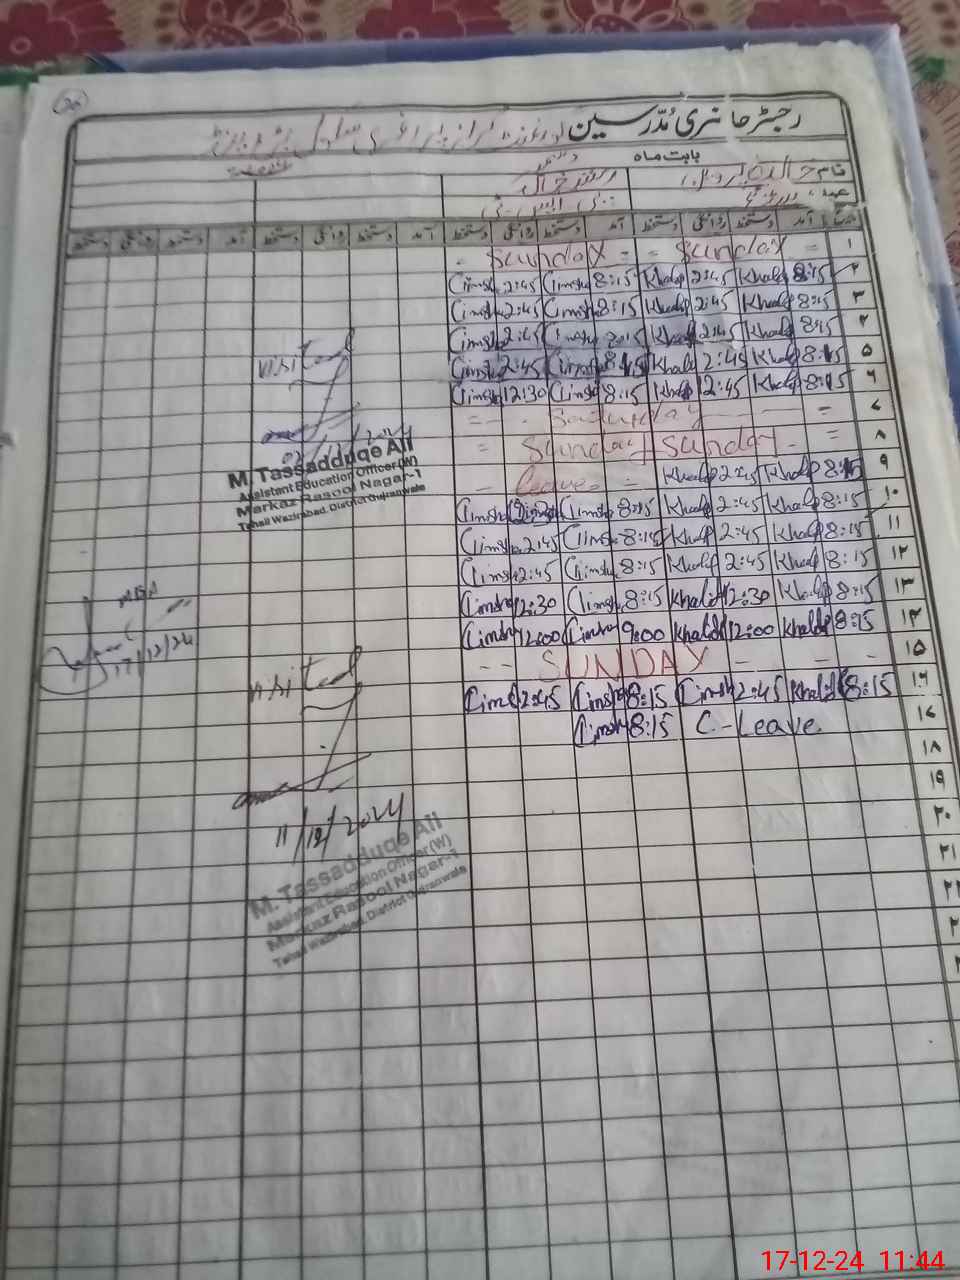 20
رجسٹر حاضری مدرسین گورنمنٹ گرلز پرائمری سکول
بابت ماہ دسمبر
نام خالدہ پروین
عہدہ
تاریخ آمد دستخط روانگی دستخط آمد دستخط روانگی دستخط آمد دستخط روانگی دستخط آمد دستخط روانگی دستخط
۱ = Sunday = = Sunday -
۲ 8:15 Khald 2:45 Khald 8:15 Cimsha 2:45 Cimsha
۳ 8:15 Khald 2:45 Khald 8:15 Cimsha 2:45 Cimsha
۴ 8:15 Khald 2:45 Khald 8:15 Cimsha 2:45 Cimsha
۵ 8:15 Khald 2:45 Khald 8:15 Cimsha 2:45 Cimsha
۶ 8:15 Khald 12:45 Khald 8:15 Cimsha 12:30 Cimsha
۷ = Saturday - =
۸ = Sunday Sunday =
۹ 8:15 Khald 2:45 Khald - leave -
۱۰ 8:15 Khald 2:45 Khald 8:15 Cimsha Cimsha
۱۱ 8:15 Khald 2:45 Khald 8:15 Cimsha 2:45 Cimsha
۱۲ 8:15 Khald 2:45 Khald 8:15 Cimsha 2:45 Cimsha
۱۳ 8:15 Khald 12:30 Khald 8:15 Cimsha 12:30 Cimsha
۱۴ 8:15 Khald 12:00 Khald 9:00 Cimsha 12:00 Cimsha
۱۵ - - SUNDAY - - -
۱۶ 8:15 Khald 2:45 Cimsha 8:15 Cimsha 2:45 Cimsha
۱۷ C-Leave 8:15 Cimsha
۱۸
۱۹
۲۰
۲۱
Visited
M. Tassadduqe Ali
Assistant Education Officer (W)
Markaz Rasool Nagar-1
Tehsil Wazirabad, District Gujranwala
17/12/24
Visited
11/12/2024
M. Tassadduqe Ali
Assistant Education Officer (W)
Markaz Rasool Nagar-1
Tehsil Wazirabad, District Gujranwala
17-12-24 11:44